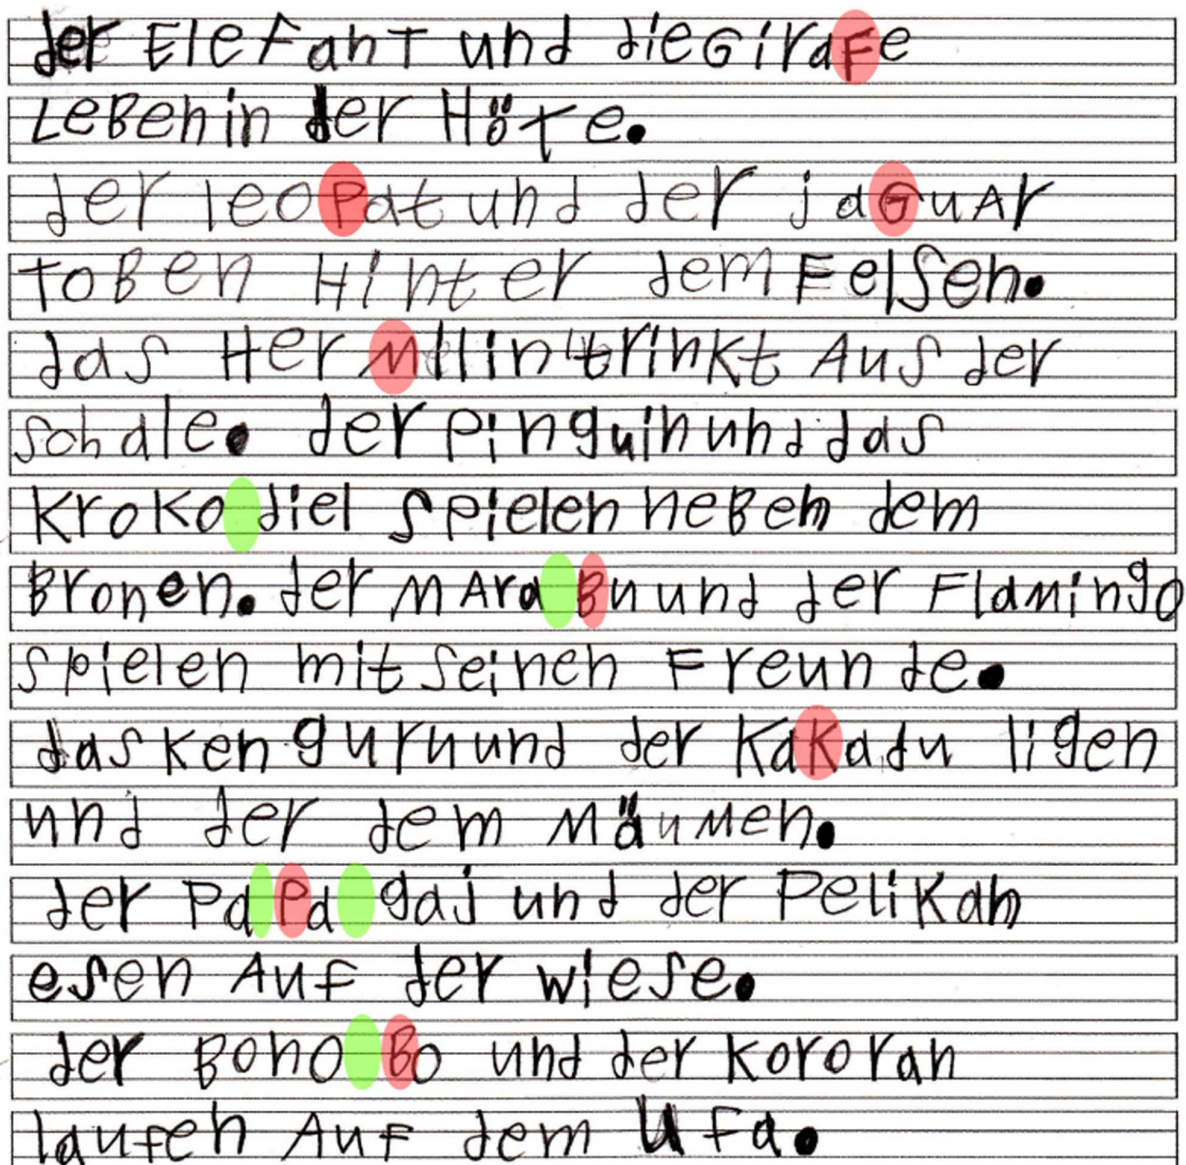 der ElefanT und dieGiraFe
LeBen in der Höte.
der leoPat und der jaGuAr
ToBen Hinter dem Felsen.
das HerMilin trinkt Aus der
schale. der pinguin und das
KroKo diel spielen neBen dem
Bronen. der MAra Bu und der Flamingo
spielen mit seinen Freunde.
das Kenguru und der KaKadu ligen
und der dem MäuMen.
der PaPa gaj und der PeliKan
esen AuF der wiese.
der Bono Bo und der Kororan
laufen AuF dem Ufa.